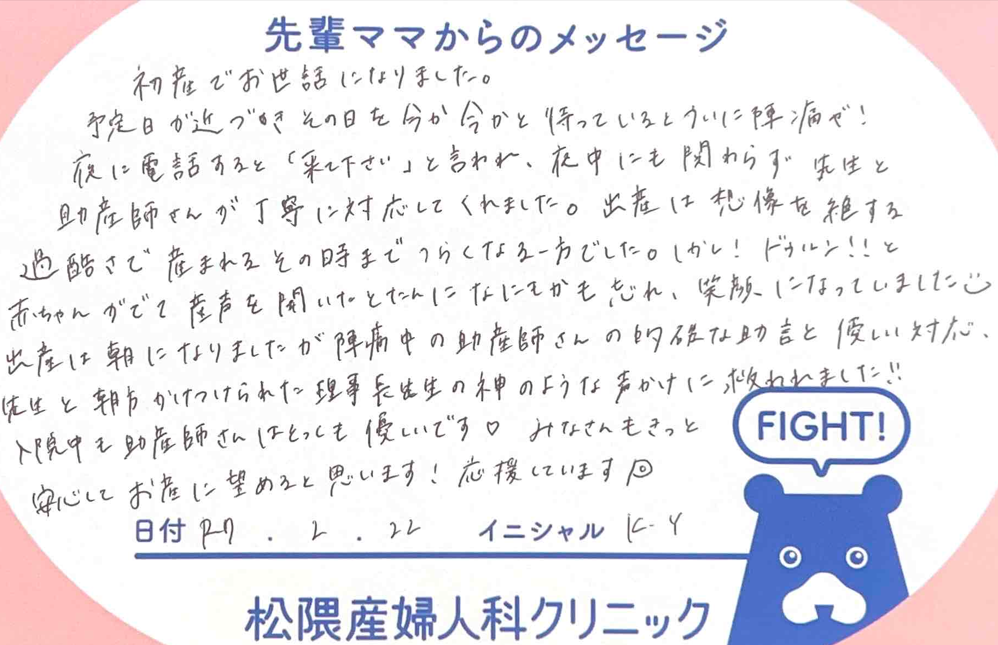 先輩ママからのメッセージ
初産でお世話になりました。
予定日が近づきその日を今か今かと待っているとついに陣痛が!
夜に電話すると「来て下さい」と言われ、夜中にも関わらず先生と
助産師さんが丁寧に対応してくれました。出産は想像を絶する
過酷さで産まれるその時までつらくなる一方でした。しかし!ドゥルン!!と
赤ちゃんがでて産声を聞いたとたんになにもかも忘れ、笑顔になっていました
出産は朝になりましたが陣痛中の助産師さんの的確な助言と優しい対応、
先生と朝方かけつけられた理事長先生の神のような声かけに救われました!!
入院中も助産師さんはとっても優しいです♡ みなさんもきっと
安心してお産に望めると思います!応援しています
FIGHT!
日付 R7 . 2 . 22 イニシャル K.Y
松隈産婦人科クリニック